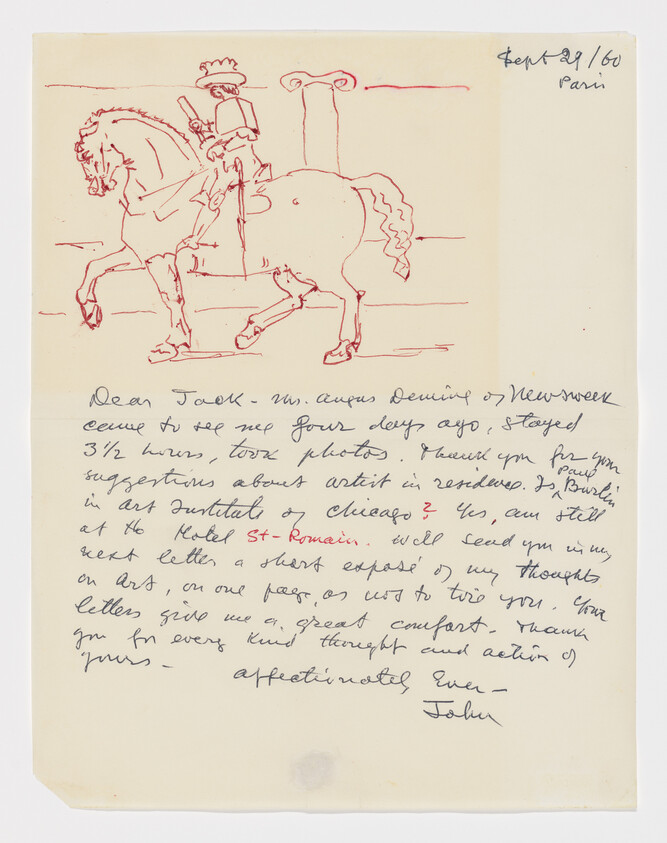 Sept 29/60
Paris
Dear Jack - Mr. Angus Deming of Newsweek
came to see me four days ago, stayed
3 1/2 hours, took photos. Thank you for your
suggestions about artist in residence. Is Paul Burlin
in Art Institute of Chicago? Yes, am still
at the Hotel St-Romain. Will send you in my
next letter a short exposé of my thoughts
on art, on one page, as not to tire you. Your
letters give me a great comfort. Thank
you for every kind thought and action of
yours -
affectionately Ever -
John